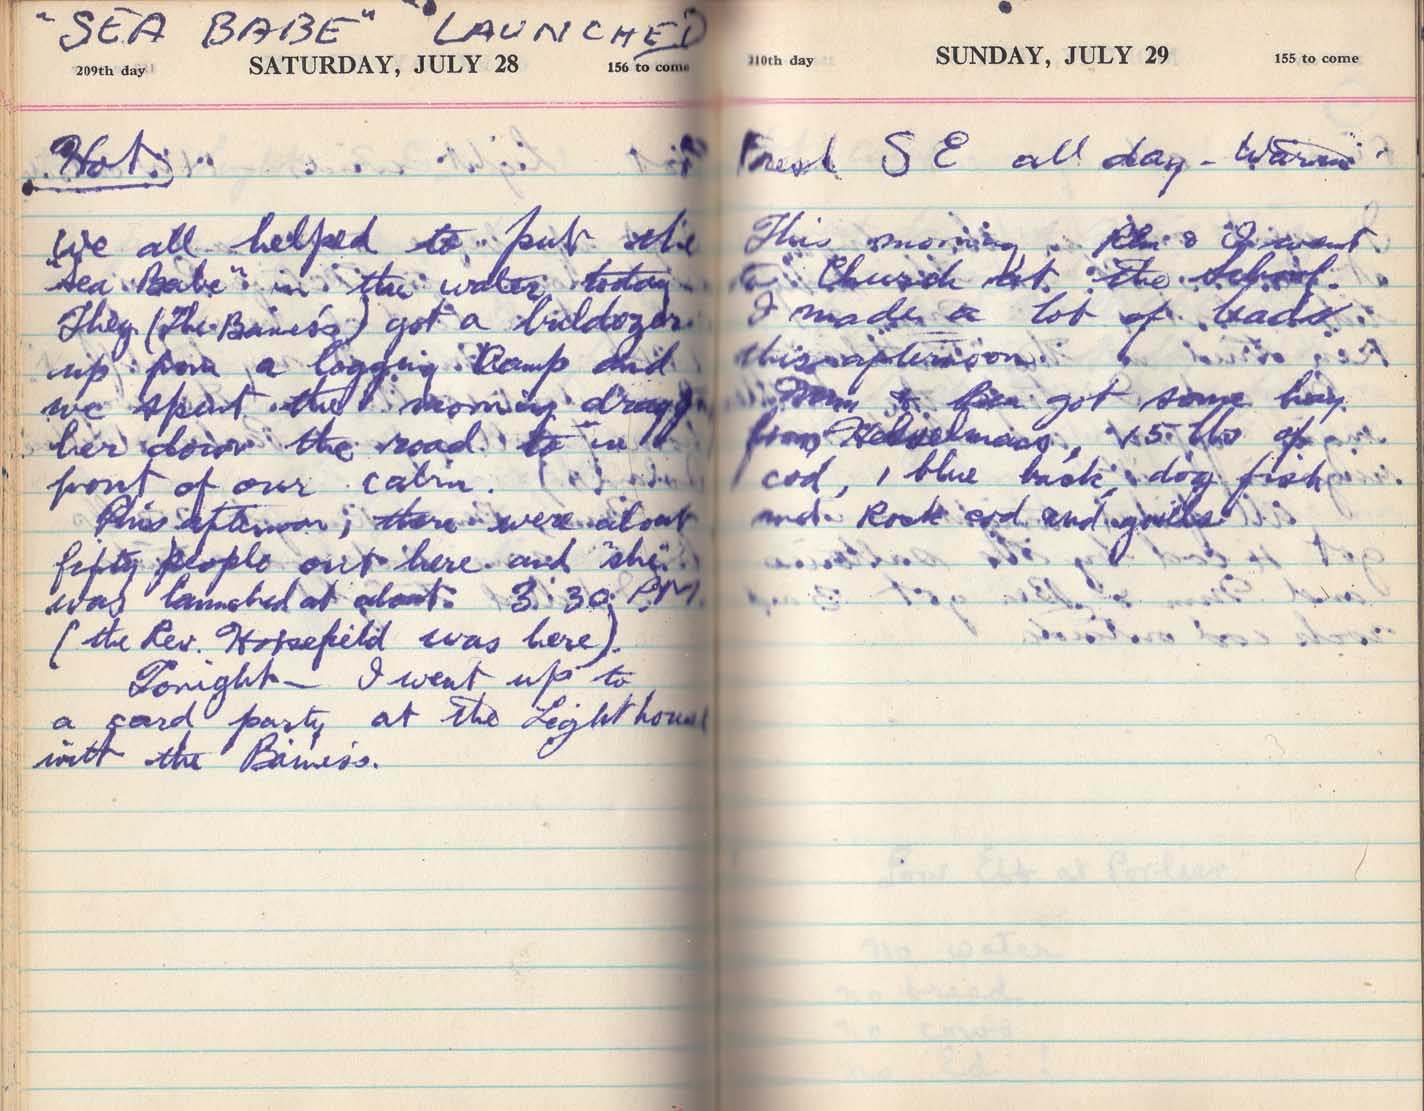 "SEA BABE" LAUNCHED
209th day SATURDAY, JULY 28 156 to come
Hot.
We all helped to put the
"Sea Babe" in the water today.
They (The Bainess) got a buldozer
up from a logging Camp and
we spent the morning dragg
her down the road to in
front of our cabin.
This afternoon, there were about
fifty people out here and "she"
was launched at about 3:30 P.M.
(the Rev. Horsefield was here).
Tonight — I went up to
a card party at the Lighthouse
with the Bainess.
210th day SUNDAY, JULY 29 155 to come
Fresh S E all day - Warm
This morning & I went
to Church at the School.
I made a lot of leads
this afternoon.
got some
from 15 lbs of
cod, 1 blue back, dog fish
and Rock cod and